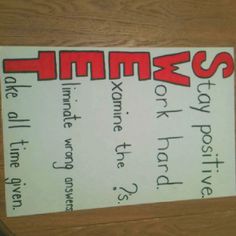 Stay positive.
Work hard.
Examine the ?s.
Eliminate wrong answers
Take all time given.